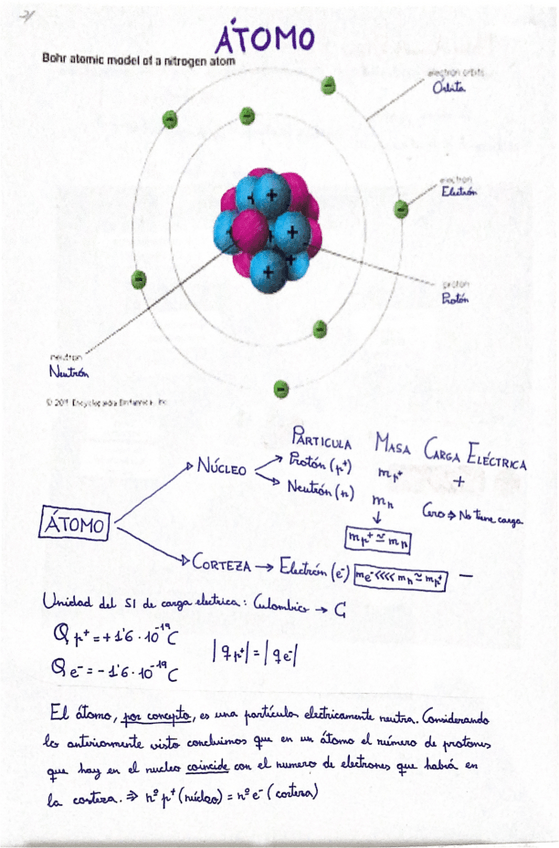 ÁTOMO
Bohr atomic model of a nitrogen atom
electron orbits
Órbita
electron
Electrón
proton
Protón
neutron
Neutrón
© 2011 Encyclopædia Britannica, Inc.
PARTICULA MASA CARGA ELÉCTRICA
NÚCLEO Protón (p⁺) mp⁺ +
Neutrón (n) mn Cero ⇒ No tiene carga
mp⁺ ≃ mn
ÁTOMO
CORTEZA → Electrón (e⁻) me⁻ <<<< mn ≃ mp⁺ −
Unidad del SI de carga electrica: Culombio → C
Q p⁺ = +1'6·10⁻¹⁹ C
|qp⁺| = |qe⁻|
Q e⁻ = -1'6·10⁻¹⁹ C
El átomo, por concepto, es una partícula eléctricamente neutra. Considerando
lo anteriormente visto concluimos que en un átomo el número de protones
que hay en el nucleo coincide con el numero de electrones que habrá en
la corteza. ⇒ nº p⁺ (núcleo) = nº e⁻ (corteza)